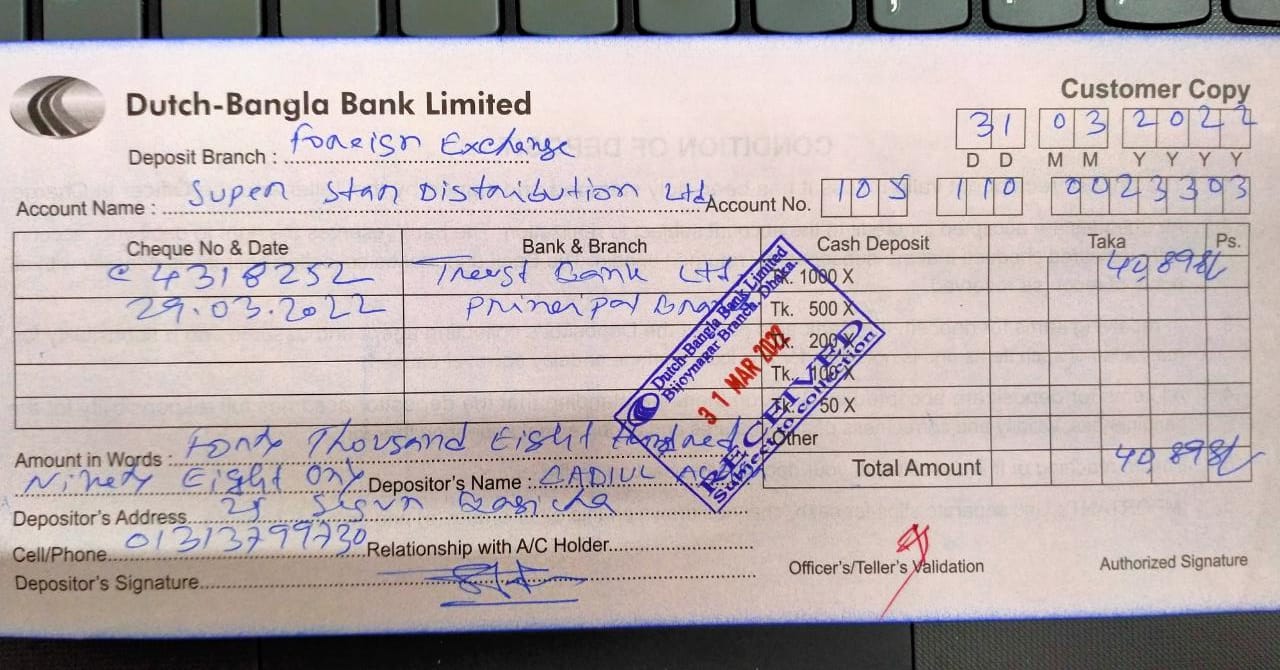 Customer Copy
Dutch-Bangla Bank Limited
31 03 2022
D D M M Y Y Y Y
Deposit Branch : Foreign Exchange
Account Name : Super Star Distribution Ltd. Account No. 105 110 0023303
Cheque No & Date Bank & Branch Cash Deposit Taka Ps.
4318252 Trust Bank Ltd Tk. 1000 X 40,898/-
29.03.2022 Principal Tk. 500 X
Tk. 200 X
Tk. 100 X
Tk. 50 X
Other
Dutch-Bangla Bank Limited
Bijoynagar Branch, Dhaka.
31 MAR 2022
RECEIVED
Subject to collection
Amount in Words : Forty Thousand Eight Hundred
Ninety Eight Only Depositor's Name :
Total Amount 40,898/-
Depositor's Address 25 Segun Bagicha
Cell/Phone 01313799730 Relationship with A/C Holder
Depositor's Signature
Officer's/Teller's Validation Authorized Signature